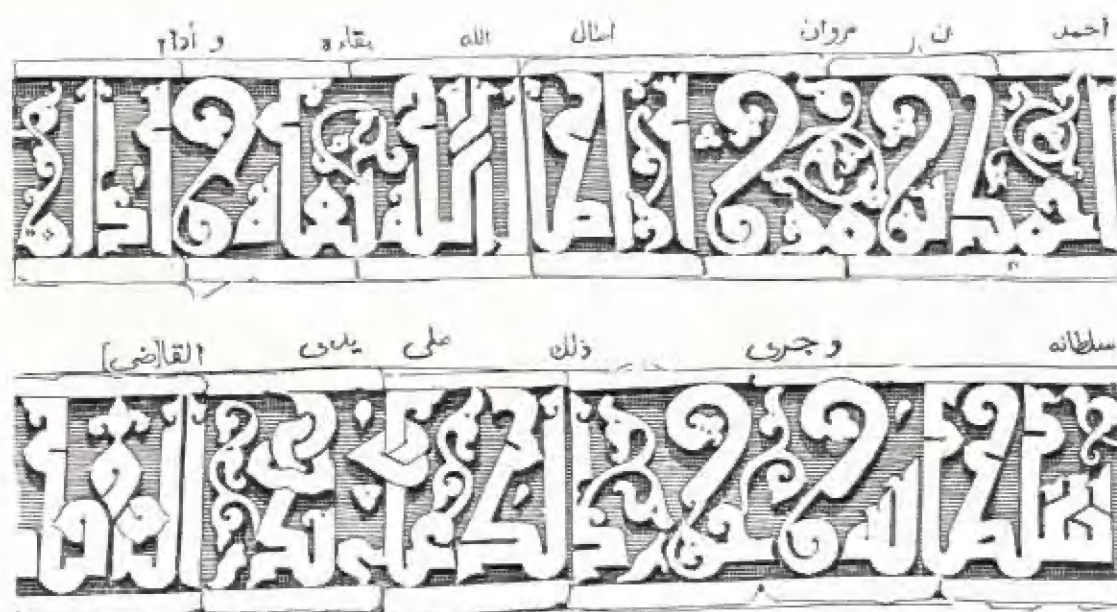 احمد بن مروان اطال الله بقاءه و أدام
سلطانه و جرى ذلك على يدى القا[ضى]